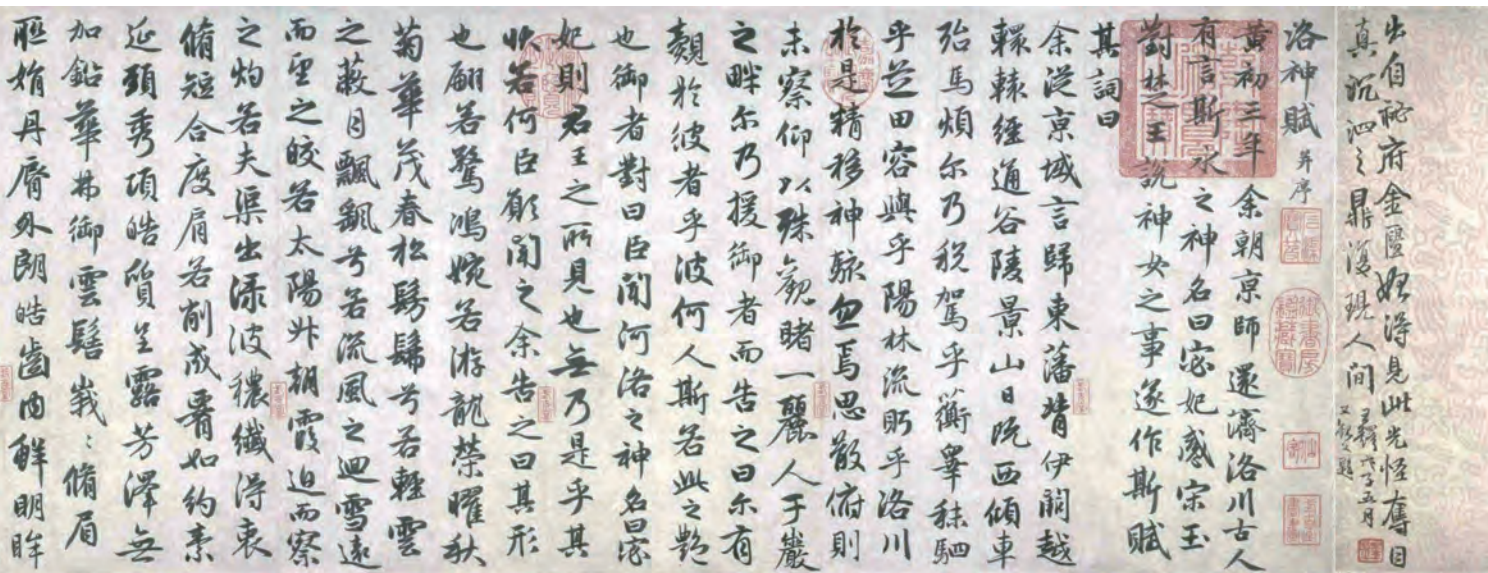 出自秘府金匱始得見此光怪奪目
真沉泗之鼎復現人間
洛神賦 并序
黃初三年余朝京師還濟洛川古人
有言斯水之神名曰宓妃感宋玉
對楚王說神女之事遂作斯賦
其詞曰
余從京域言歸東藩背伊闕越
轘轅經通谷陵景山日既西傾車
殆馬煩尔乃稅駕乎蘅皋秣駟
乎芝田容與乎陽林流眄乎洛川
於是精移神駭忽焉思散俯則
未察仰以殊觀睹一麗人于巖
之畔尔乃援御者而告之曰尔有
覿於彼者乎彼何人斯若此之艷
也御者對曰臣聞河洛之神名曰宓
妃則君王之所見也無乃是乎其
狀若何臣願聞之余告之曰其形
也翩若驚鴻婉若游龍榮曜秋
菊華茂春松髣髴兮若輕雲
之蔽月飄颻兮若流風之迴雪遠
而望之皎若太陽升朝霞迫而察
之灼若夫渠出淥波穠纖得衷
脩短合度肩若削成腰如約素
延頸秀項皓質呈露芳澤無
加鉛華弗御雲髻峩峩脩眉
聯娟丹脣外朗皓齒内鮮明眸